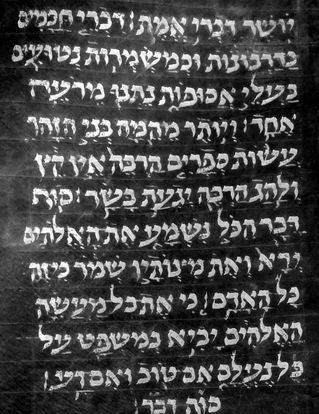 ויושר דברי אמת׃ דברי חכמים
כדרבונות וכמשמירות נטועים
בעלי אסופות נתנו מירעה
אחד׃ ויותר מהמה בני הזהר
עשות ספרים הרבה אין קץ
ולהג הרבה יגעת בשר׃ סוף
דבר הכל נשמע את האלהים
ירא ואת מיצותיו שמר כי זה
כל האדם׃ כי את כל מעשה
האלהים יביא במשפט על
כל נעלם אם טוב ואם רע׃
סוף דבר׃